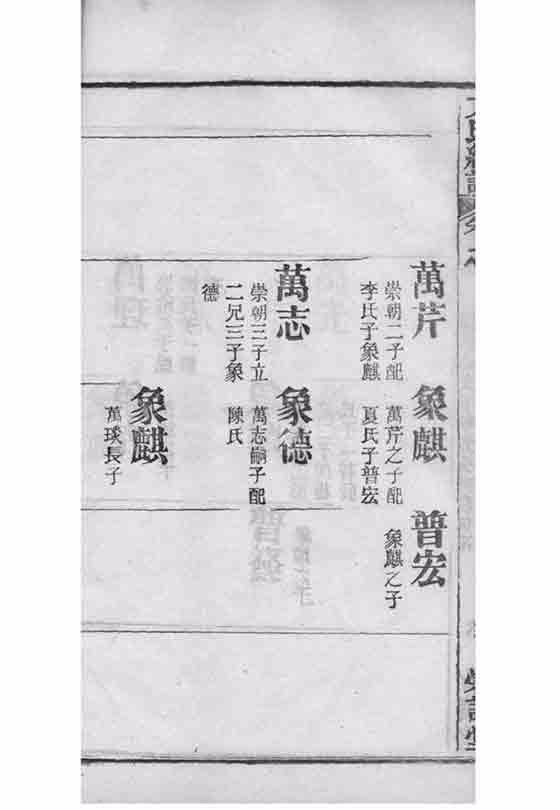 萬芹
崇朝二子配
李氏子象麒
象麒
萬芹之子配
夏氏子普宏
普宏
象麒之子
萬志
崇朝三子立
二兄三子象
德
象德
萬志嗣子配
陳氏
象麒
萬琰長子